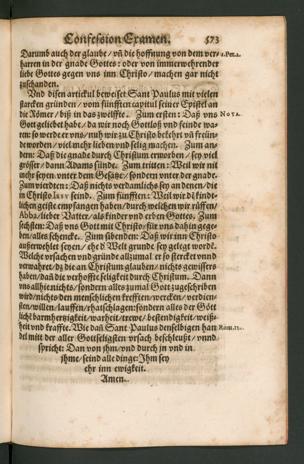 Confession Examen. 573
Darumb auch der glaube / vñ die hoffnung von dem ver⸗ 1.Pet.1.
harren in der gnade Gottes: oder von immerwehrender
liebe Gottes gegen vns inn Christo / machen gar nicht
zuschanden.
Vnd disen artickel beweiset Sant Paulus mit vielen
starcken gründen / vom fünfften capitul seiner Epistel an
die Römer / biß in das zwölffte. Zum ersten: Daß vns NOTA.
Gott geliebet habe / da wir noch Gottloß vnd seinde wa⸗
ren: so werde er vns / nuh wir zu Christo bekehrt vñ freün⸗
de worden / viel mehr lieben vnd selig machen. Zum an⸗
dern: Daß die gnade durch Christum erworben / sey viel
grösser / dann Adams sünde. Zum tritten: Weil wir nit
mehr seyen vnter dem Gesätze / sondern vnter der gnade.
Zum vierdten: Daß nichts verdamlichs sey an denen / die
in Christo Iesv seind. Zum fünfften: Weil wir dz kinde⸗
lichen geiste empfangen haben / durch welchen wir rüffen /
Abba / lieber Vatter / als kinder vnd erben Gottes. Zum
sechsten: Daß vns Gott mit Christo / für vns dahin gege⸗
ben / alles schencke. Zum sibenden: Daß wir inn Christo
außerwehlet seyen / ehe d̓ Welt grunde sey gelegt wordẽ.
Welche vrsachen vnd gründe allzumal er so stercket vnnd
verwahret / dz die an Christum glauben / nichts gewissers
haben / dañ die verhoffte seligkeit durch Christum. Dann
vns allhie nichts / sondern alles zumal Gott zugeschriben
wird / nichts den menschlichen krefften / wercken / verdien⸗
sten / willen / lauffen / rhatschlagen: sondern alles der Göt
lichẽ barmhertzigkeit / warheit / trewe / bestendigkeit / weiß⸗
heit vnd kraffte. Wie dañ Sant Paulus denselbigen han Rom.11.
del mit der aller Gottseligsten vrsach beschleußt / vnnd
spricht: Dan von jhm / vnd durch jn vnd in
jhme / seind alle dinge: Jhm sey
ehr inn ewigkeit.
Amen.